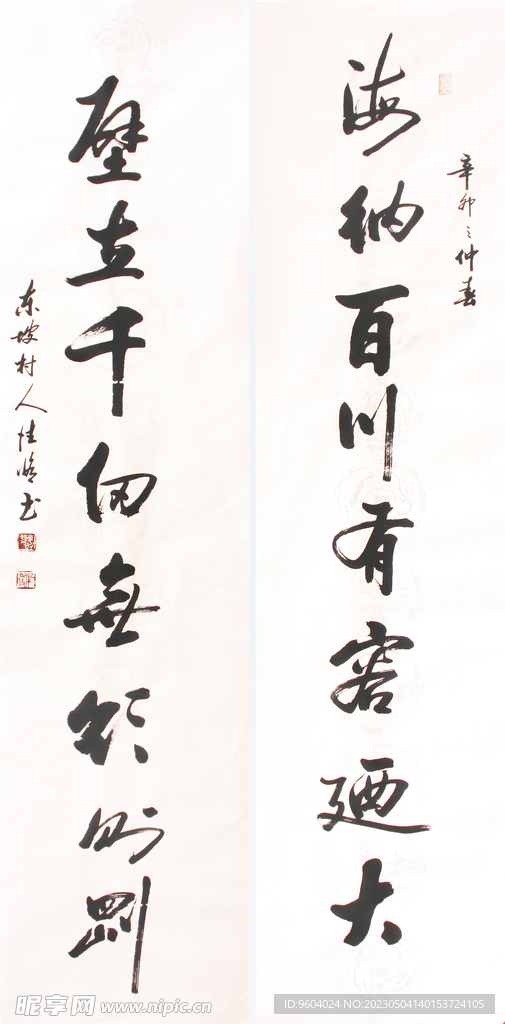 辛卯之仲春
海納百川有容廼大
壁立千仞無欲則剛
东坡村人
书
昵享网 www.nipic.cn
ID:9604024 NO:20230504140153724105